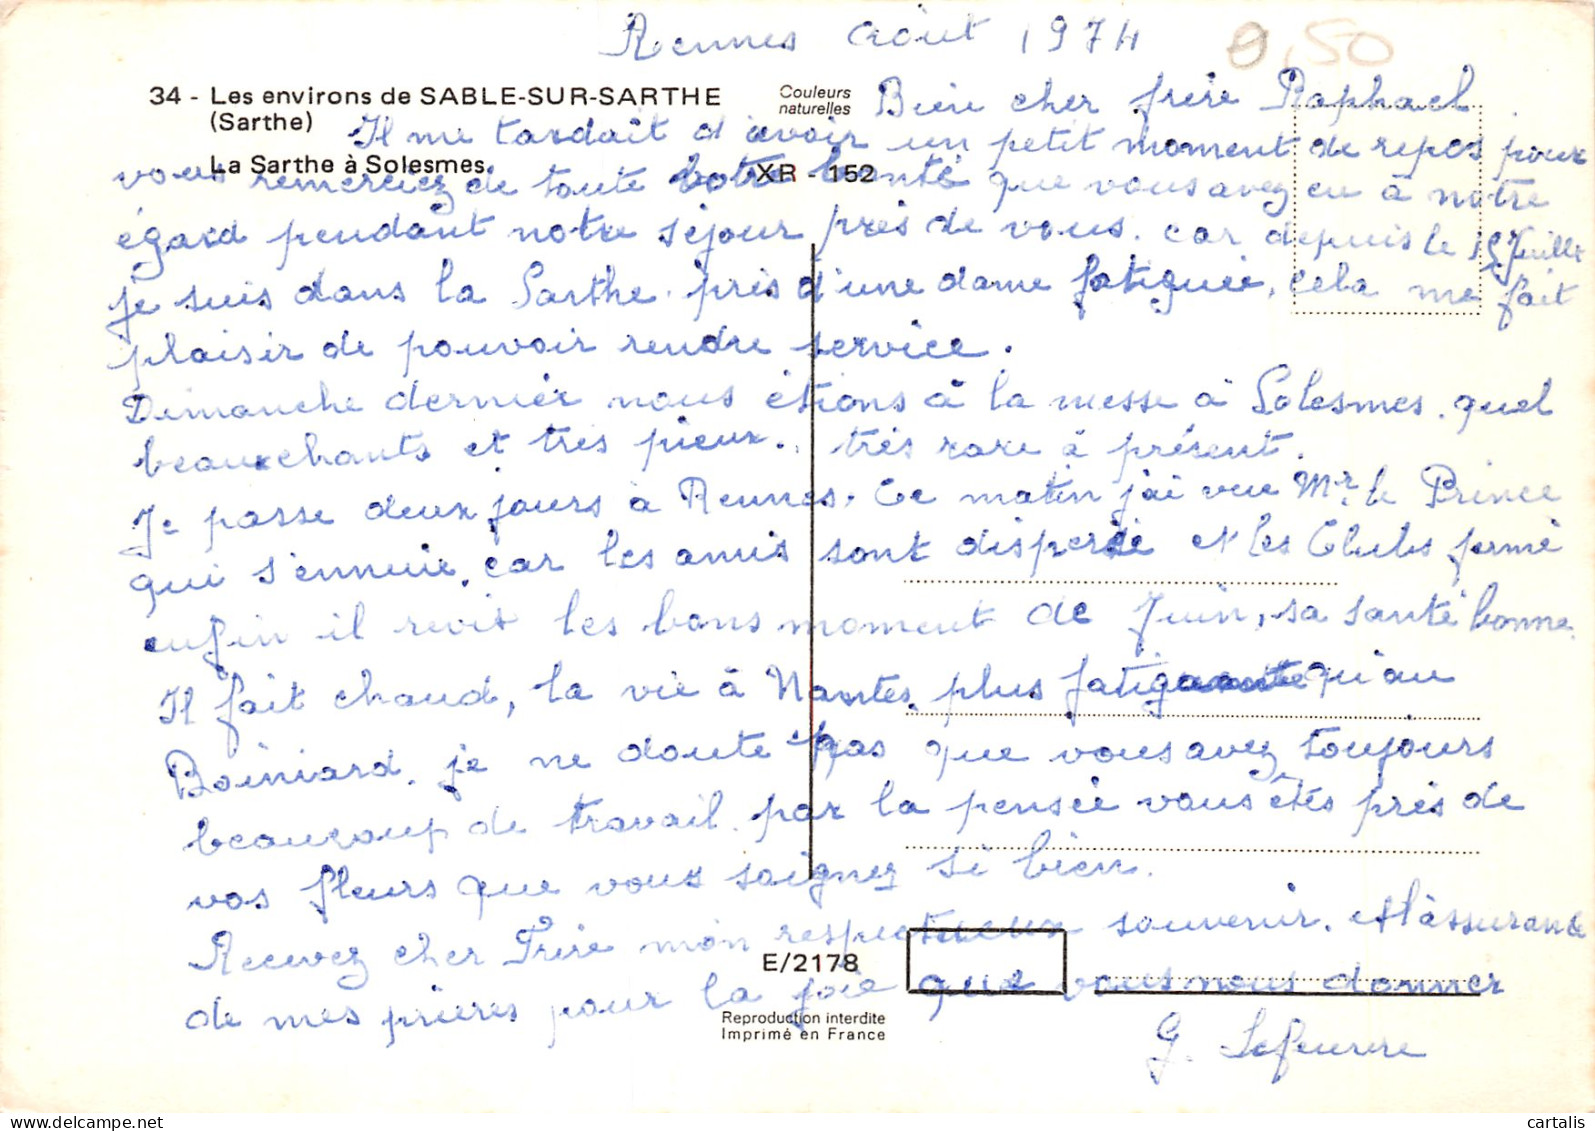 Rennes Août 1974
0,50
34 - Les environs de SABLE-SUR-SARTHE
(Sarthe)
La Sarthe à Solesmes
Couleurs
naturelles
XR - 152
Bien cher frère Raphael
Il me tardait d'avoir un petit moment de repos pour
vous remerciez de toute votre bonté que vous avez eu à notre
égard pendant notre séjour près de vous. car depuis le 15 Juillet
je suis dans la Sarthe. près d'une dame fatiguée, cela me fait
plaisir de pouvoir rendre service.
Dimanche dernier nous étions à la messe à Solesmes. quel
beaux chants et très pieux. très rare à présent.
Je passe deux jours à Rennes. Ce matin j'ai vue Mr. le Prince
qui s'ennuie, car les amis sont dispersé et les Clubs fermé
enfin il revit les bons moment de Juin, sa santé bonne.
Il fait chaud, la vie à Nantes, plus fatigante qu'au
Boiniard. je ne doute pas que vous avez toujours
beaucoup de travail. par la pensée vous étés près de
vos fleurs que vous soignez si bien.
Recevez cher Frère mon respectueux souvenir. et l'assurance
de mes prières pour la joie que vous nous donner
G. Lefeuvre
E/2178
Reproduction interdite
Imprimé en France
cartalis